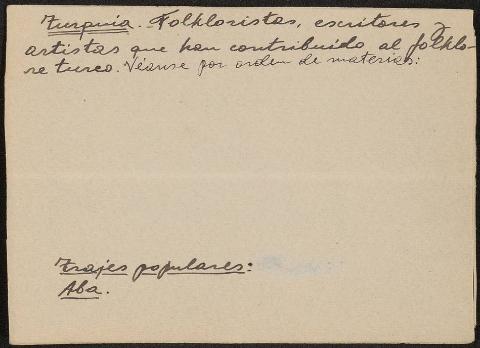 Turquia. Folkloristas, escritores y
artistas que han contribuido al folklo-
re turco. Véanse por orden de materias:
Trajes populares:
Aba.